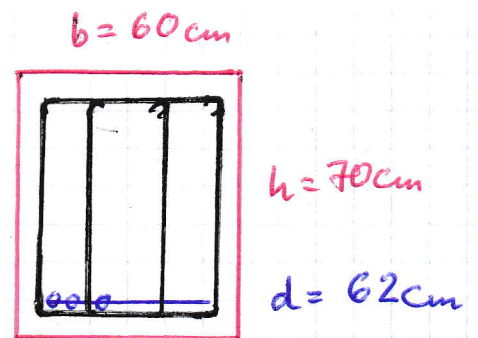 b = 60 cm
h = 70 cm
d = 62 cm